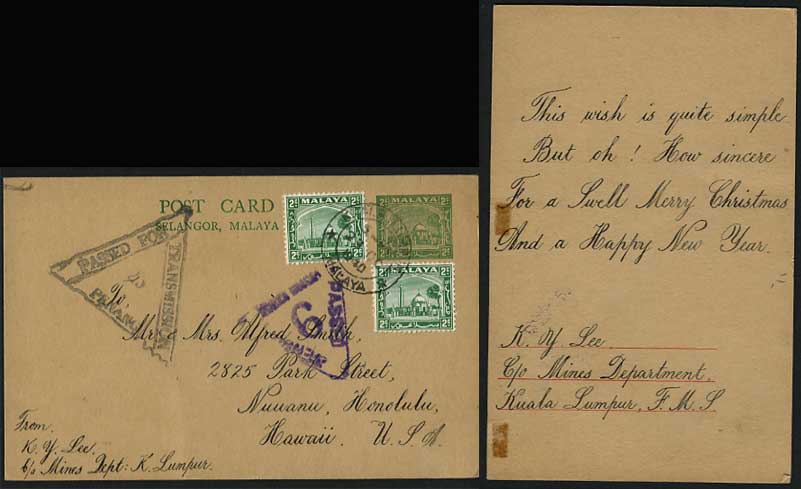 POST CARD
SELANGOR, MALAYA
2c MALAYA 2c
2c MALAYA 2c
2c MALAYA 2c
MALAYA
PASSED FOR
TRANSMISSION
PENANG
PASSED
6
To,
Mr. & Mrs. Alfred Smith,
2825 Park Street,
Nuuanu, Honolulu,
Hawaii. U.S.A.
From
K. Y. Lee.
C/o Mines Dept: K. Lumpur.
This wish is quite simple
But oh! How sincere
For a Swell Merry Christmas
And a Happy New Year.
K. Y. Lee
C/o Mines Department,
Kuala Lumpur, F.M.S.